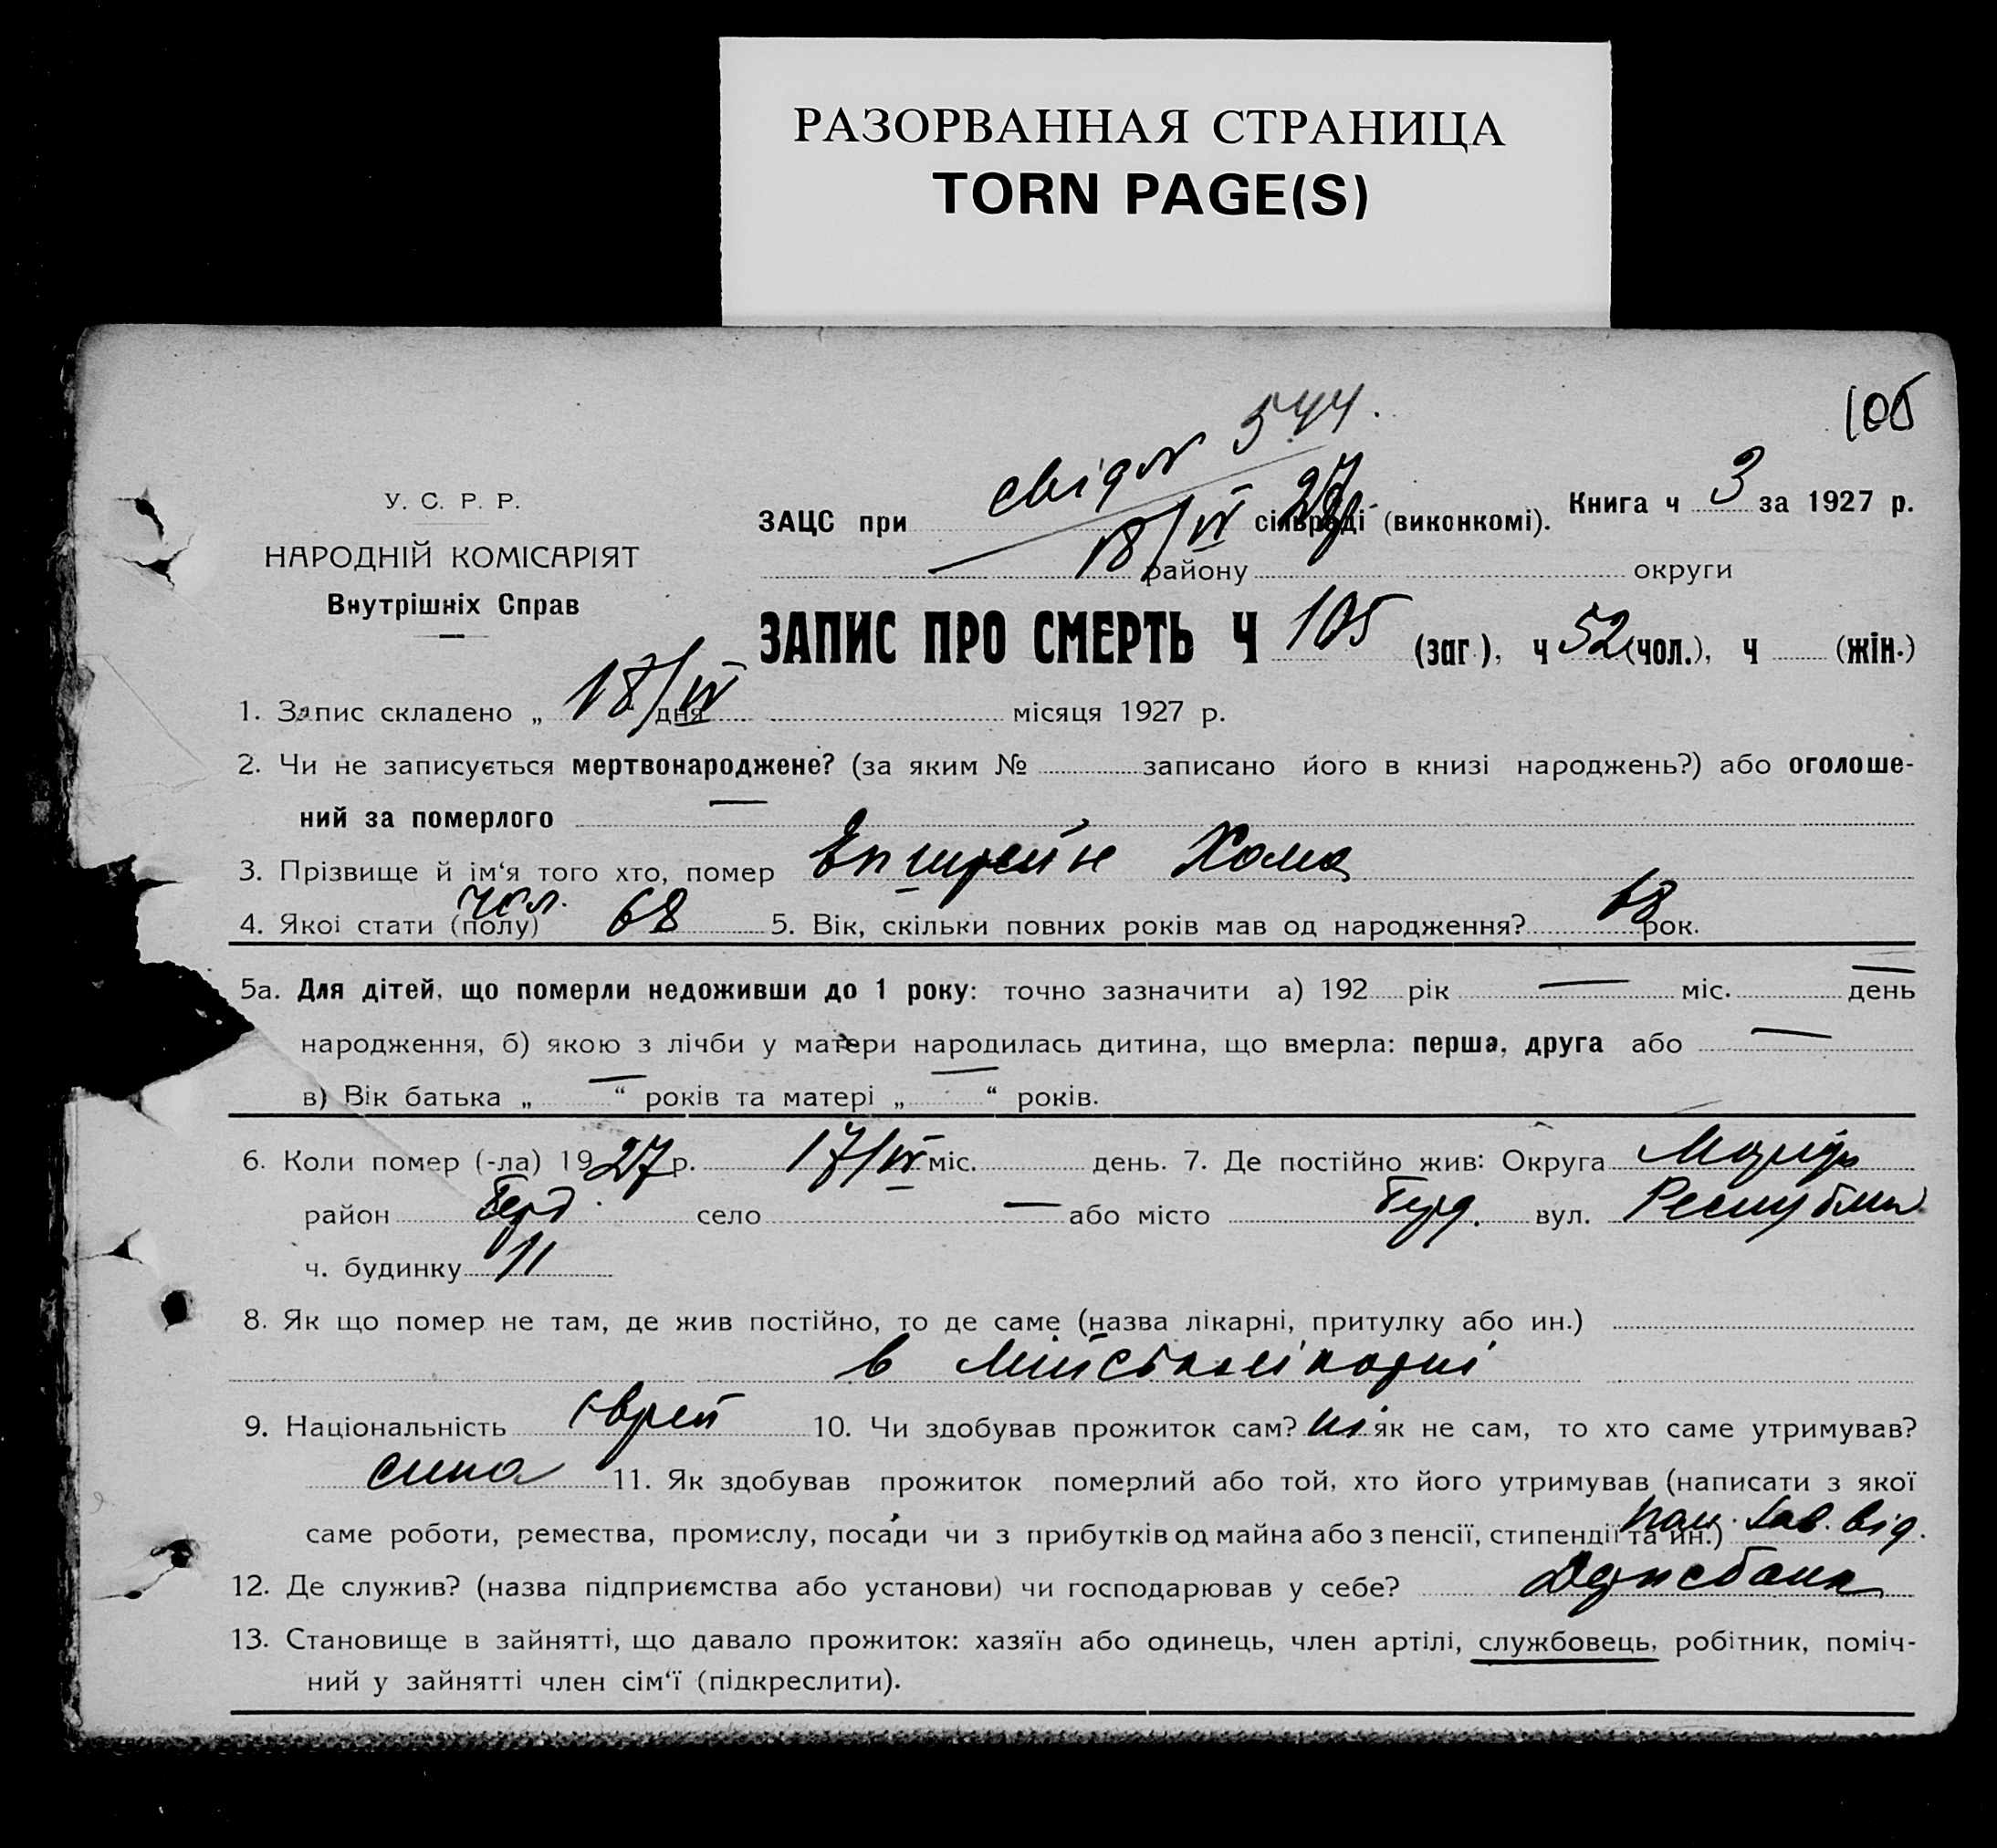 РАЗОРВАННАЯ СТРАНИЦА
TORN PAGE(S)
105
свід № 544.
18/IV 27
У. С. Р. Р.
НАРОДНІЙ КОМІСАРІЯТ
Внутрішніх Справ
ЗАЦС при сільраді (виконкомі). Книга ч 3 за 1927 р.
району округи
ЗАПИС ПРО СМЕРТЬ Ч 105 (заг.), ч 52 (чол.), ч (жін.)
1. Запис складено „ 18/IV дня місяця 1927 р.
2. Чи не записується мертвонароджене? (за яким № записано його в книзі народжень?) або оголоше-
ний за померлого —
3. Прізвище й ім‘я того хто, помер Епштейн Хома
4. Якої стати (полу) чол. 68 5. Вік, скільки повних років мав од народження? 68 рок.
5а. Для дітей, що померли недоживши до 1 року: точно зазначити а) 192 рік — міс. — день
народження, б) якою з лічби у матери народилась дитина, що вмерла: перша, друга або —
в) Вік батька „ — “ років та матері „ — “ років.
6. Коли помер (-ла) 1927 р. 17/IV міс. день. 7. Де постійно жив: Округа
район Берд. село — або місто Берд. вул.
ч. будинку 11
8. Як що помер не там, де жив постійно, то де саме (назва лікарні, притулку або ин.)
в
9. Національність Єврей 10. Чи здобував прожиток сам? ні як не сам, то хто саме утримував?
сина 11. Як здобував прожиток померлий або той, хто його утримував (написати з якої
саме роботи, ремества, промислу, посади чи з прибутків од майна або з пенсії, стипендії та ин.) пом. зав. від.
12. Де служив? (назва підприємства або установи) чи господарював у себе? Держбанк
13. Становище в зайнятті, що давало прожиток: хазяїн або одинець, член артілі, службовець, робітник, поміч-
ний у зайнятті член сім‘ї (підкреслити).